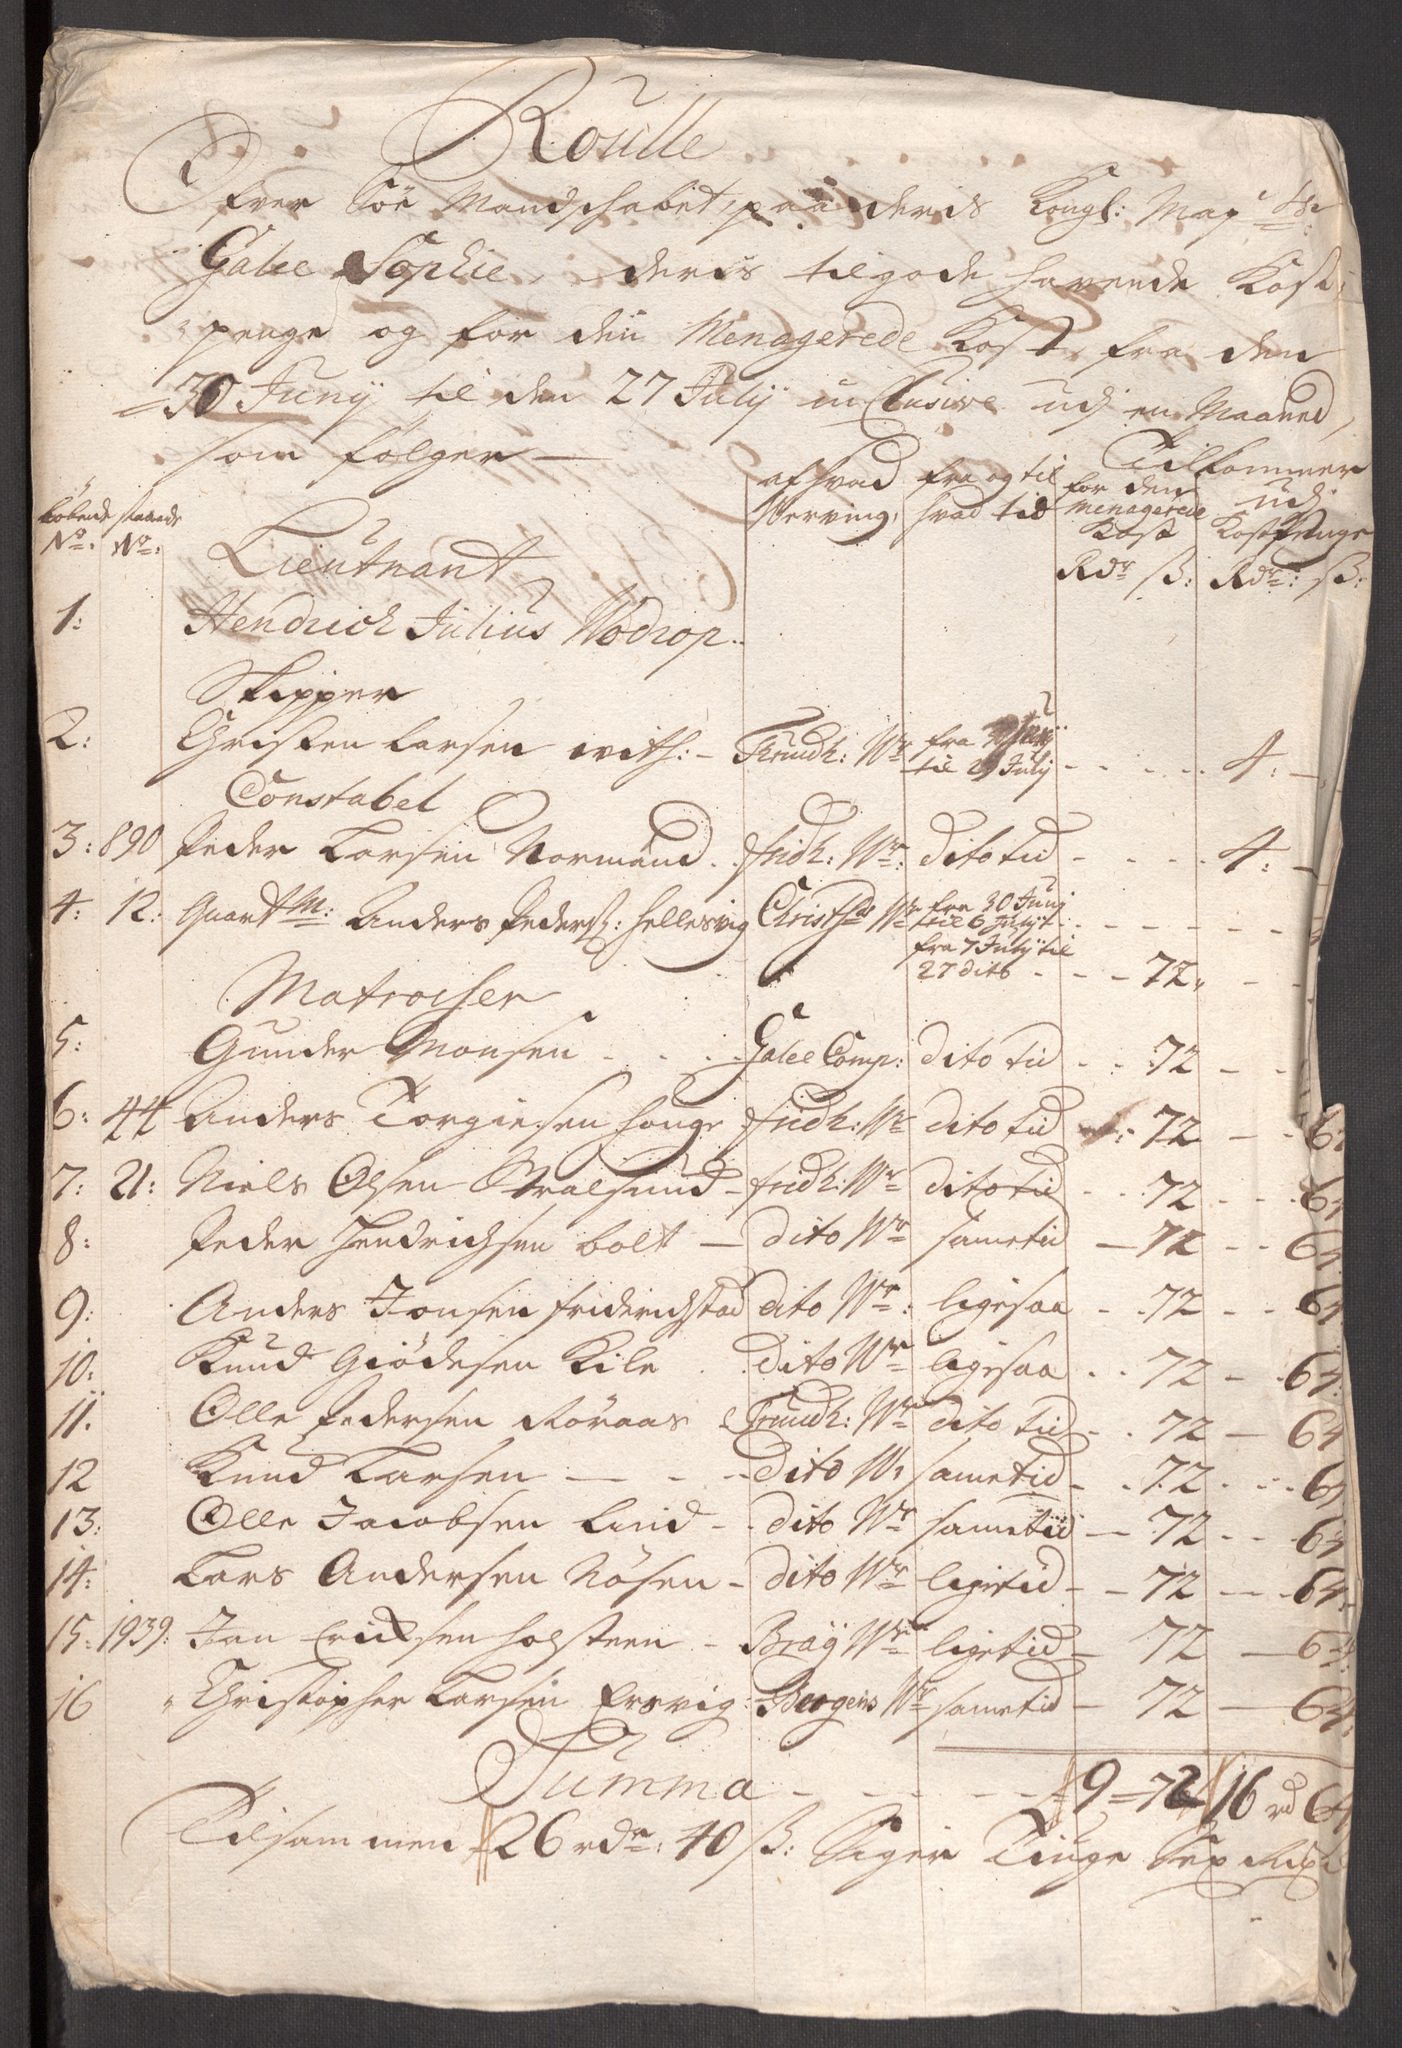 Roulle
Ofver Söe Mandschabet paa deris Kongl: May:
Galee Sophie, deris tilgode havende Kost
penge og for den Menagerede Kost, fra den
30 Juny til den 27 July inclusive udj en Maaned,
som følger —
Løbende No:
staaende No:
af hvad Verving,
fra og til hvad tid
Tilkommer
for den menagerede Kost
udj Kostpenge
Rdr ß: Rdr: ß:
Lieutnant
1: Hendrich Julius Wodrop..
Skipper
2: Christen Larsen with: - Trundh: Wr fra 30 Juny til 27 July - - - - - 4: -
Constabel
3: 890 Peder Larsen Normand. fridh: Wr: dito tid - - - - 4: -
4: 12: Quartm: Anders Peders: Hellesvig Christs Wr fra 30 Juny til 6 July
fra 7 July til 27 dito - - - 72
Matroser
5: Gunder Monsen - - - Galee Comp: dito tid - - 72 - -
6: 44 Anders Torgiersen Houge fridh: Wr dito tid 72 - - 64
7: 21: Niels Olsen Stralsund - fridh: Wr dito tid - - 72 - - - 64
8: Peder Hendrichsen bolt - dito Wr sametid - 72 - - 64
9: Anders Jonsen friderichstad dito Wr: ligesaa - - 72 - - 64
10: Knud Giödesen Kile . dito Wr ligesaa - - 72 - - 64
11. Olle Pedersen Röraas Trundh: Wr dito tid - - 72 - 64
12 Knud Larsen - - - dito Wr sametid - - 72 - - 64
13: Olle Jacobsen Lind - - dito Wr sametid - 72 - - 64
14: Lars Andersen Nösen - dito Wr ligetid - - 72 - - 64
15: 1939: Jan Ericksen Holsteen - Bray Wr ligetid - 72 - 64
16 Christopher Larsen Ersvig: Bergens Wr sametid - 72 - 64
Summa - - - - 9 = 72 16 rd 64
Tilsammen 26 rdr: 40 ß: Siger Tiuge Sex Rixd